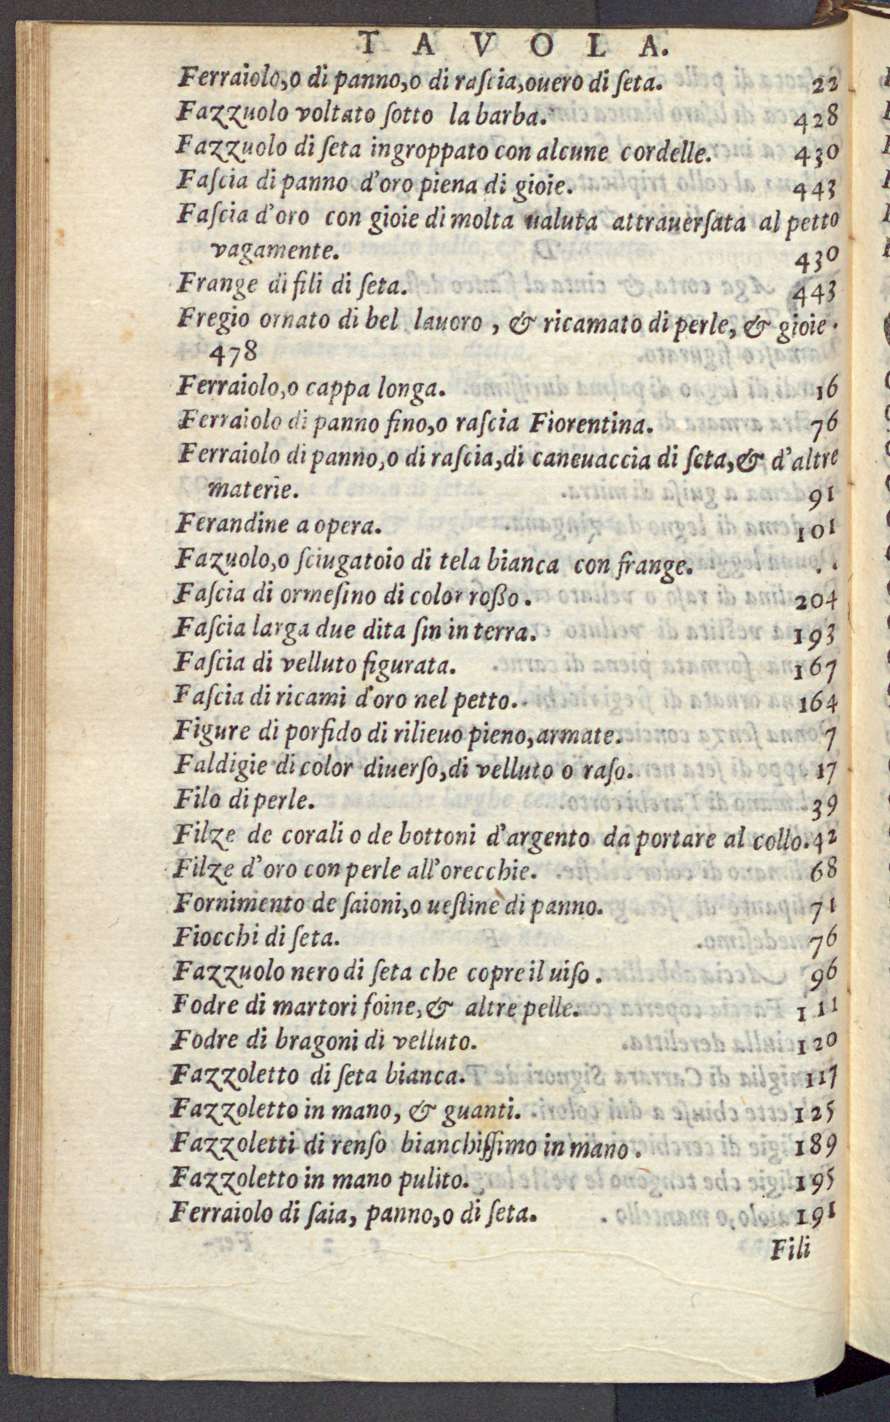 TAVOLA.
Ferraiolo,o di panno,o di raſcia,ouero di ſeta. 22
Fazzuolo voltato ſotto la barba. 428
Fazzuolo di ſeta ingroppato con alcune cordelle. 430
Faſcia di panno d'oro piena di gioie. 443
Faſcia d'oro con gioie di molta ualuta attrauerſata al petto
vagamente. 430
Frange di fili di ſeta. 443
Fregio ornato di bel lauoro , & ricamato di perle, & gioie.
478
Ferraiolo,o cappa longa. 16
Ferraiolo di panno fino,o raſcia Fiorentina. 76
Ferraiolo di panno,o di raſcia,di caneuaccia di ſeta,& d'altre
materie. 91
Ferandine a opera. 101
Fazuolo,o ſciugatoio di tela bianca con frange. . .
Faſcia di ormeſino di color roßo. 204
Faſcia larga due dita ſin in terra. 193
Faſcia di velluto figurata. 167
Faſcia di ricami d'oro nel petto. 164
Figure di porfido di rilieuo pieno,armate. 7
Faldigie di color diuerſo,di velluto o raſo. 17
Filo di perle. 39
Filze de corali o de bottoni d'argento da portare al collo. 42
Filze d'oro con perle all'orecchie. 68
Fornimento de ſaioni,o ueſtine di panno. 71
Fiocchi di ſeta. 76
Fazzuolo nero di ſeta che copre il uiſo. 96
Fodre di martori foine,& altre pelle. 111
Fodre di bragoni di velluto. 120
Fazzoletto di ſeta bianca. 117
Fazzoletto in mano, & guanti. 125
Fazzoletti di renſo bianchiſſimo in mano. 189
Fazzoletto in mano pulito. 195
Ferraiolo di ſaia, panno,o di ſeta. 191
Fili